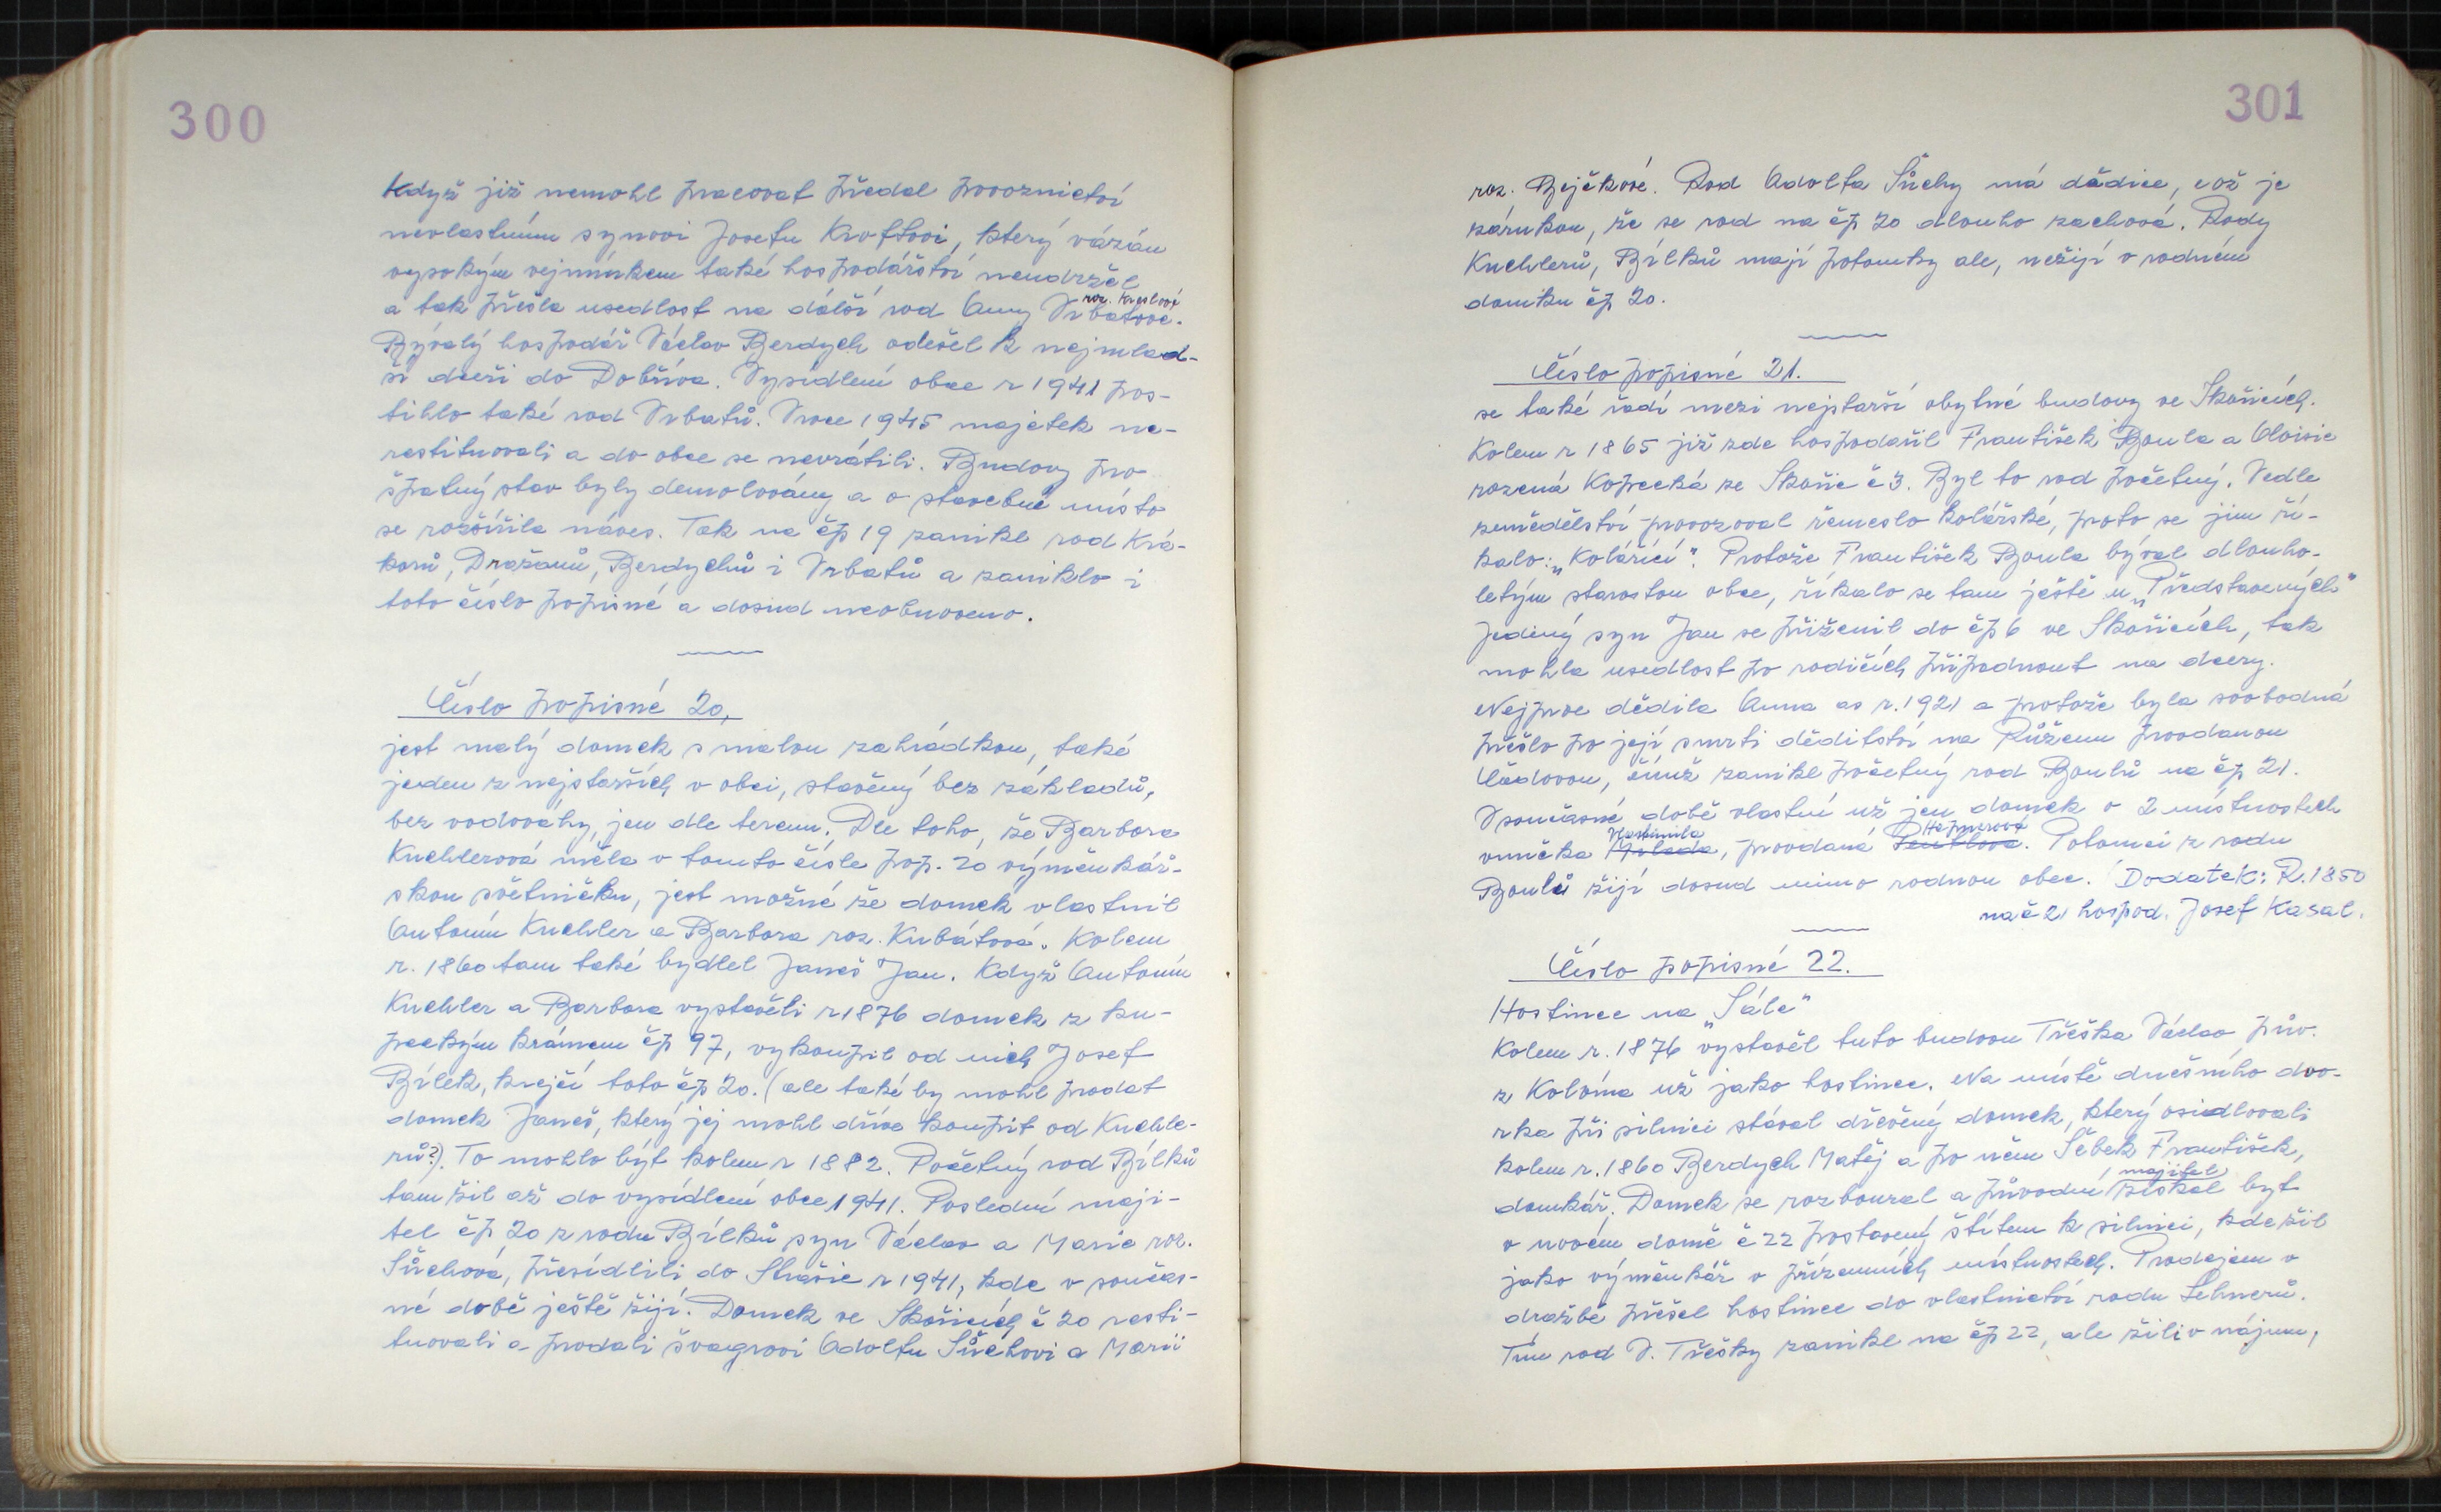 300
Když již nemohl pracovat předal provoznictví
nevlastnímu synovi Josefu Kroftovi, který vázán
vysokým vejminkem také hospodářství neudržel
roz. Kreslové
a tak přešla usedlost na další rod Anny Vrbatové.
Bývalý hospodář Václav Berdych odešel k nejmlad-
ší dceři do Dobříva. Vysídlení obce r 1941 pos-
tihlo také rod Vrbatů. V roce 1945 majetek ne-
restituovali a do obce se nevrátili. Budovy pro
špatný stav byly demolovány a o stavebné místo
se rozšířila náves. Tak na čp 19 zanikl rod Krá-
korů, Dražanů, Berdychů i Vrbatů a zaniklo i
toto číslo popisné a dosud neobnoveno.
Číslo popisné 20.
jest malý domek s malou zahrádkou, také
jeden z nejstarších v obci, stavěný bez základů,
bez vodováhy, jen dle terenu. Dle toho, že Barbora
Kuchlerová měla v tomto čísle pop. 20 výměnkář-
skou světničku, jest možné že domek vlastnil
Antonín Kuchler a Barbora roz. Kubátová. Kolem
r. 1860 tam také bydlel Janeš Jan. Když Antonín
Kuchler a Barbora vystavěli r 1876 domek z ku-
peckým krámem čp 97, vykoupil od nich Josef
Bílek, krejčí toto čp 20. (ale také by mohl prodat
domek Janeš, který jej mohl dříve koupit od Kuchle-
rů?). To mohlo být kolem r 1882. Početný rod Bílků
tam žil až do vysídlení obce 1941. Poslední maji-
tel čp 20 z rodu Bílků syn Václav a Marie roz.
Sůchová, přesídlili do Strašic r 1941, kde v součas-
né době ještě žijí. Domek ve Skořicích č 20 resti-
tuovali a prodali švagrovi Adolfu Sůchovi a Marii
301
roz. Bejčkové. Rod Adolfa Sůchy má dědice, což je
zárukou, že se rod na čp 20 dlouho zachová. Rody
Kuchlerů, Bílků mají potomky ale, nežijí v rodném
domku čp 20.
Číslo popisné 21.
se také řadí mezi nejstarší obytné budovy ve Skořicích.
Kolem r 1865 již zde hospodařil František Boula a Aloisie
rozená Kopecká ze Skořic č 3. Byl to rod početný. Vedle
zemědělství provozoval řemeslo kolářské, proto se jim ří-
kalo: "Koláříci". Protože František Boula býval dlouho-
letým starostou obce, říkalo se tam ještě u "Představených"
Jediný syn Jan se přiženil do čp 6 ve Skořicích, tak
mohla usedlost po rodičích připadnout na dcery.
Nejprve dědila Anna as r. 1921 a protože byla svobodná
přešlo po její smrti dědictví na Růženu provdanou
Čádovou, čímž zanikl početný rod Boulů na čp 21.
V současné době vlastní už jen domek o 2 místnostech
Vlastimila Hofmanová
vnučka Milada, provdaná. Potomci z rodu
Boulů žijí dosud mimo rodnou obec. Dodatek: R. 1850
na č 21 hospod. Josef Kasal.
Číslo popisné 22.
Hostinec na "Sále"
Kolem r. 1876 vystavěl tuto budovu Třeška Václav pův.
z Kolvína už jako hostinec. Na místě dnešního dvo-
rka při silnici stával dřevěný domek, který osidlovali
kolem r. 1860 Berdych Matěj a po něm Šebek František,
majitel
domkář. Domek se rozboural a původní získal byt
v novém domě č 22 postavený štítem k silnici, kde žil
jako výměnkář v přízemních místnostech. Prodejem v
dražbě přešel hostinec do vlastnictví rodu Lehnerů.
Tím rod V. Třešky zanikl na čp 22, ale žili v nájmu,